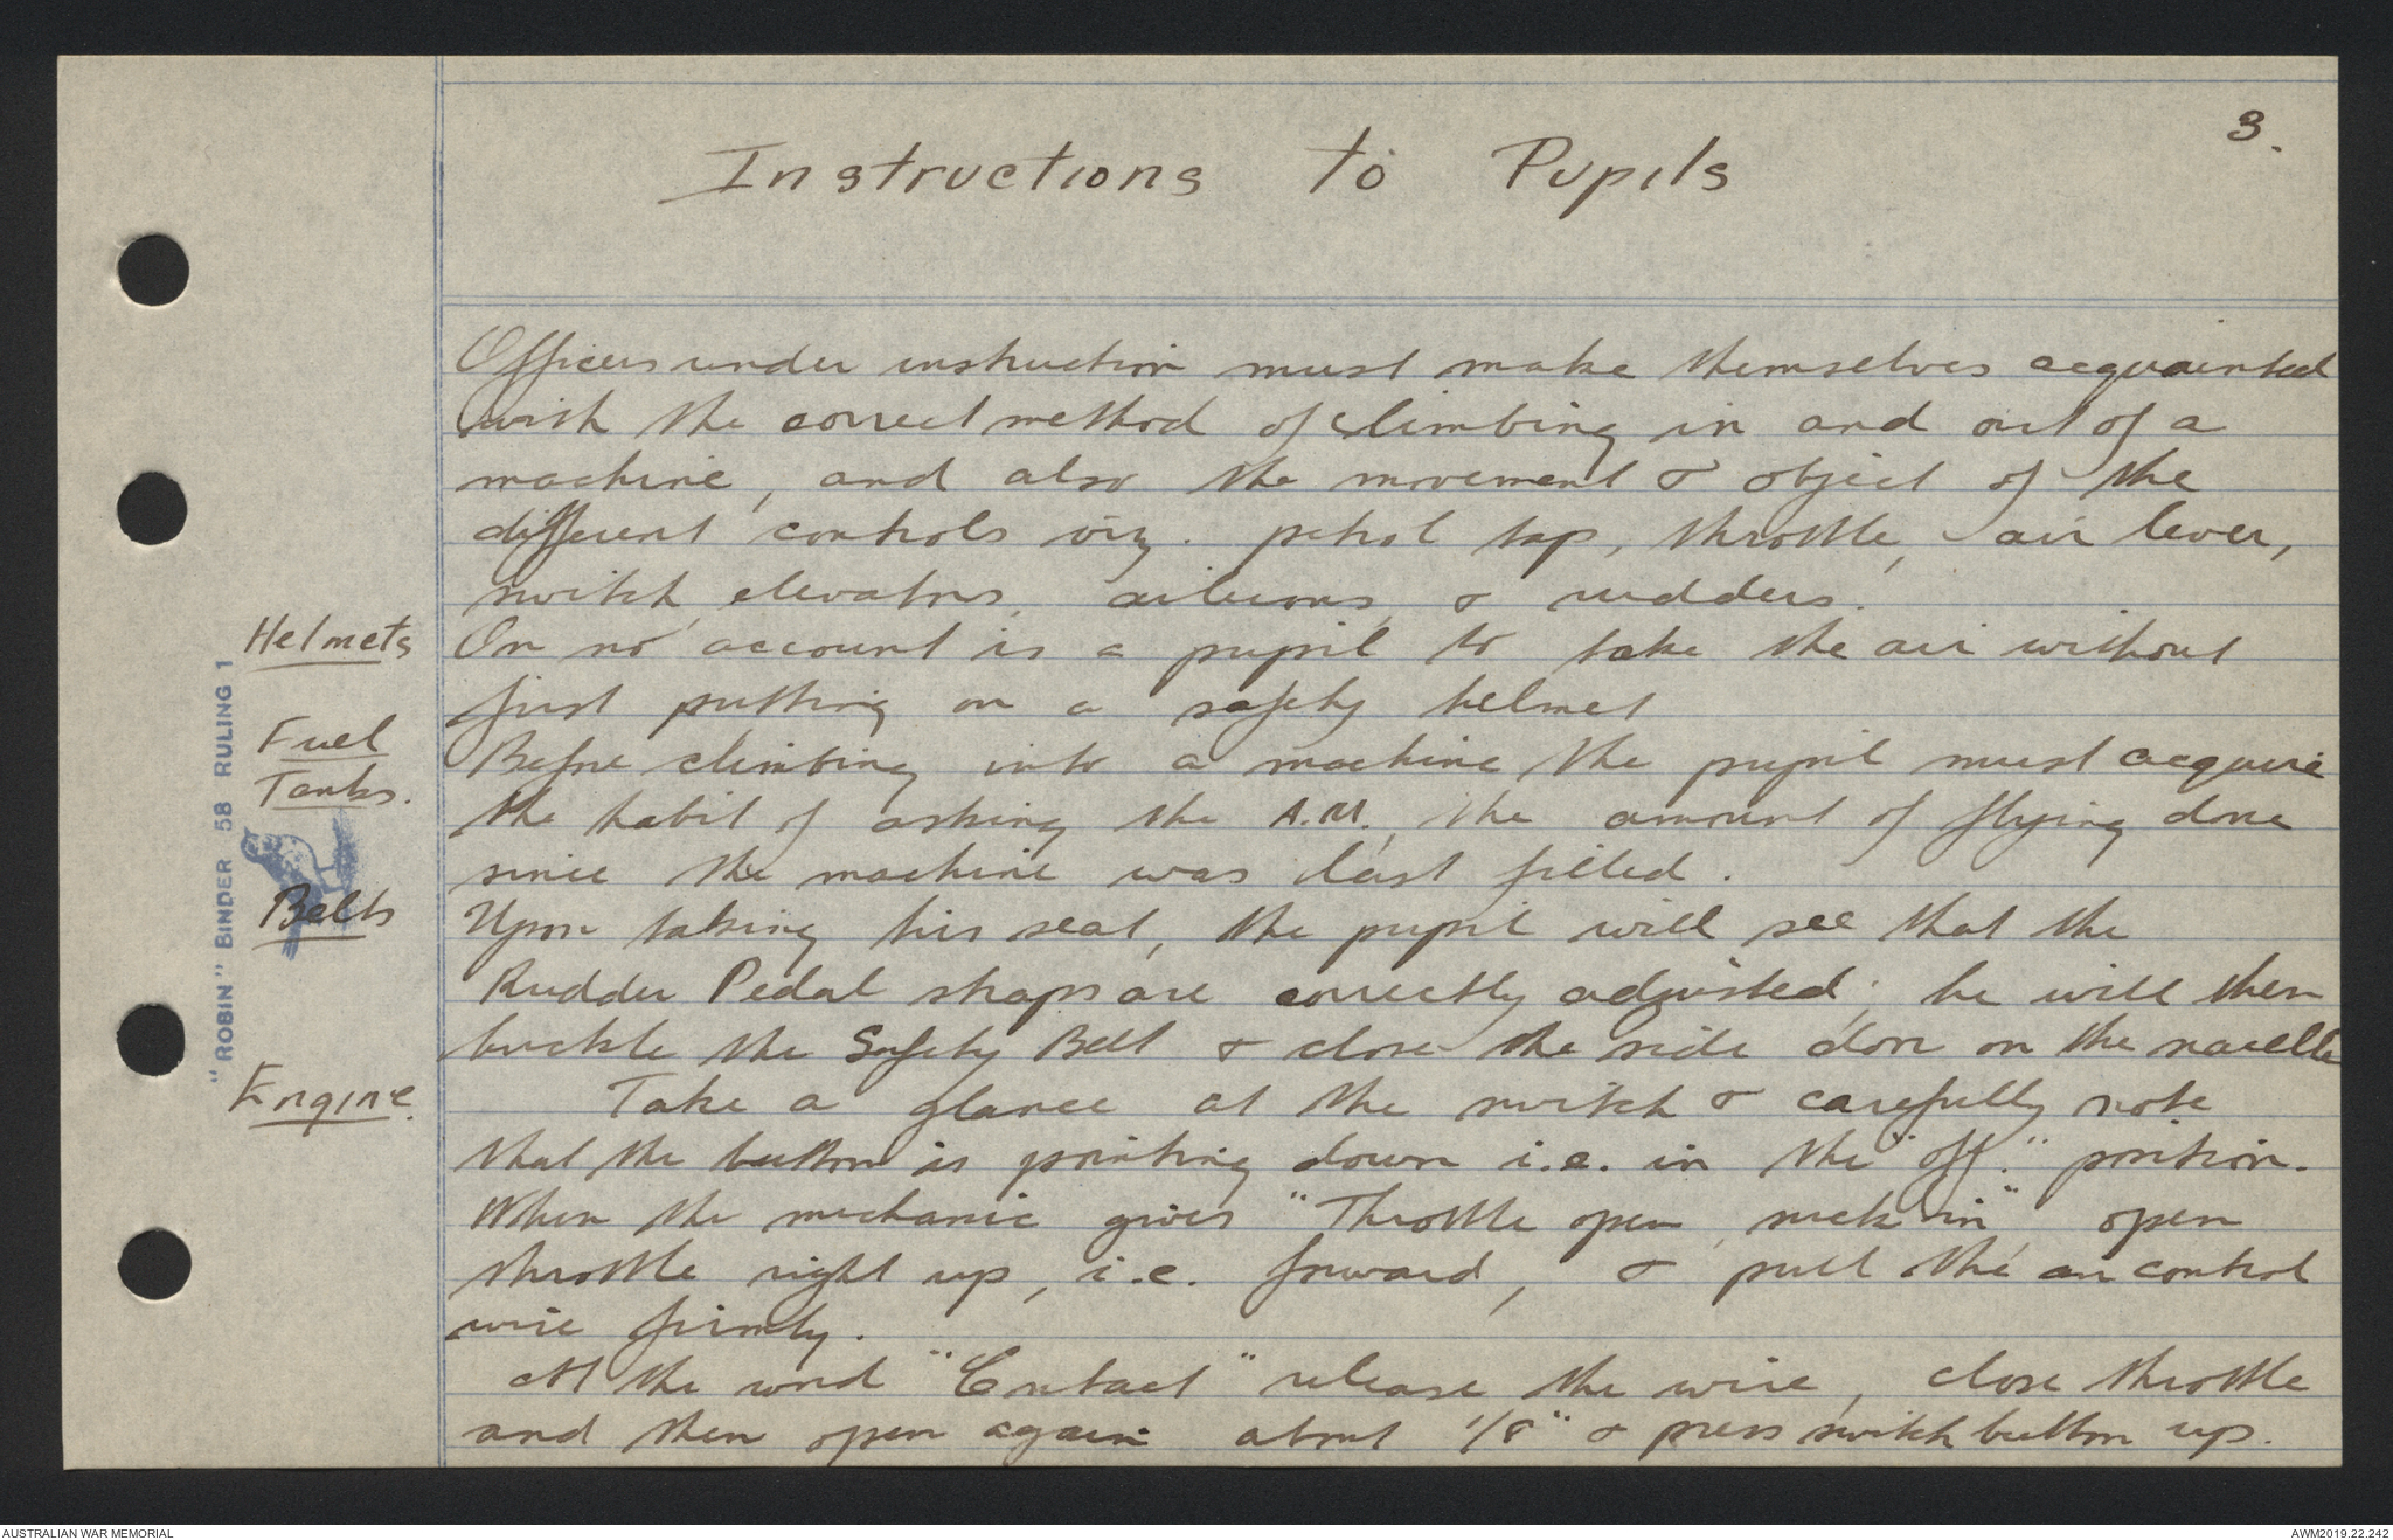 3.
Instructions to Pupils
Officers under instruction must make themselves acquainted
with the correct method of climbing in and out of a
machine, and also the movement & object of the
different controls viz. petrol tap, throttle, air lever,
switch, elevators, ailerons, & rudders.
Helmets
On no account is a pupil to take the air without
first putting on a safety helmet
Fuel
Tanks.
Before climbing into a machine the pupil must acquire
the habit of asking the A.M., the amount of flying done
since the machine was last filled.
Belts
Upon taking his seat, the pupil will see that the
Rudder Pedal straps are correctly adjusted; he will then
buckle the Safety Belt & close the side door on the nacelle
Engine.
Take a glance at the switch & carefully note
that the button is pointing down i.e. in the "off." position.
When the mechanic gives "Throttle open, suck in", open
throttle right up, i.e. forward, & pull the air control
wire firmly.
At the word "Contact" release the wire, close throttle
and then open again about 1/8" & press switch button up.
"ROBIN" BINDER 58 RULING 1
AUSTRALIAN WAR MEMORIAL
AWM2019.22.242